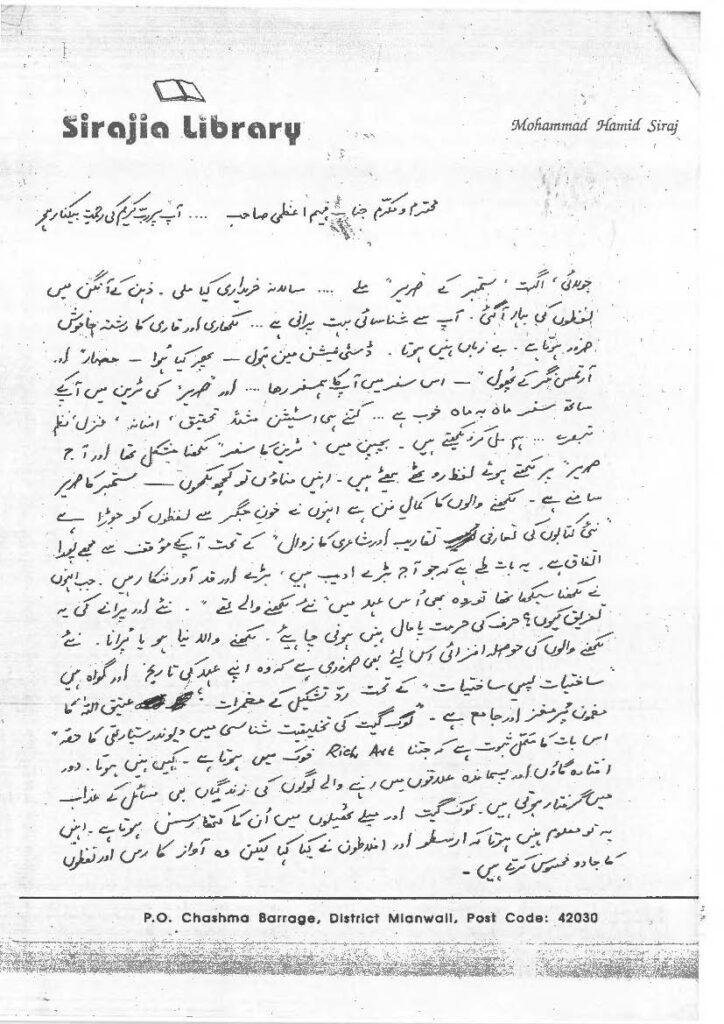 Sirajia Library
Mohammad Hamid Siraj
محترم و مکرّم جناب فہیم اعظمی صاحب .... آپ پر ربِّ کریم کی رحمت بیکنار ہو
جولائی، اگست، ستمبر کے "صریر" ملے .... سالانہ خریداری کیا ملی۔ ذہن کے آنگن میں
لفظوں کی بہار آ گئی۔ آپ سے شناسائی بہت پرانی ہے ... لکھاری اور قاری کا رشتہ خاموش
ضرور ہوتا ہے۔ بے زباں نہیں ہوتا۔ ڈسٹی نیشن مین ہول — پھر کیا ہُوا — حصار اور
آرٹمس نگر کے پھول" — اس سفر میں آپ کا ہمسفر رہا .... اور "صریر" کی ٹرین میں آپ کے
ساتھ سفر ماہ بہ ماہ خوب ہے ... کتنے ہی اسٹیشن مثلاً تحقیق، افسانہ، غزل، نظم
تبصرے ... ہم مل کر دیکھتے ہیں۔ بچپن میں "ٹرین کا سفر" لکھنا مشکل تھا اور آج
صریر" پر لکھتے ہوئے لفظ روٹھے بیٹھے ہیں۔ انہیں مناؤں تو کچھ لکھوں — ستمبر کا صریر
سامنے ہے۔ لکھنے والوں کا کمالِ فن ہے انہوں نے خونِ جگر سے لفظوں کو جوڑا ہے
"نئی کتابوں کی تعارفی تقاریب اور شاعری کا زوال" کے تحت آپ کے مؤقف سے مجھے پورا
اتفاق ہے۔ یہ بات طے ہے کہ جو آج بڑے ادیب ہیں، بڑے اور قد آور فنکار ہیں۔ جب انہوں
نے لکھنا سیکھا تھا تو وہ بھی اُس عہد میں "نئے لکھنے والے تھے"۔ نئے اور پرانے کی یہ
تفریق کیوں؟ حرف کی حرمت پامال نہیں ہونی چاہیئے۔ لکھنے والا نیا ہو یا پُرانا۔ نئے
لکھنے والوں کی حوصلہ افزائی اس لیئے بھی ضروری ہے کہ وہ اپنے عہد کی تاریخ اور گواہ ہیں
"ساختیات پسِ ساختیات" کے تحت ردِّ تشکیل کے مضمرات؛ عتیق اللہ کا
مضمون پُر مغز اور جامع ہے۔ "لوک گیت کی تخلیقیت شناسی میں دیوندر ستیارتھی کا حصّہ"
اس بات کا مکمل ثبوت ہے کہ جتنا Rich Art فوک میں ہوتا ہے۔ کہیں نہیں ہوتا۔ دور
افتادہ گاؤں اور پسماندہ علاقوں میں رہنے والے لوگوں کی زندگیاں بھی مسائل کے عذاب
میں گرفتار ہوتی ہیں۔ لوک گیت اور میلے ٹھیلوں میں اُن کا کتھارسس ہوتا ہے۔ انہیں
یہ تو معلوم نہیں ہوتا کہ ارسطو اور افلاطون نے کیا کہا لیکن وہ آواز کا رس اور لفظوں
کا جادو محسوس کرتے ہیں۔
P.O. Chashma Barrage, District Mianwali, Post Code: 42030